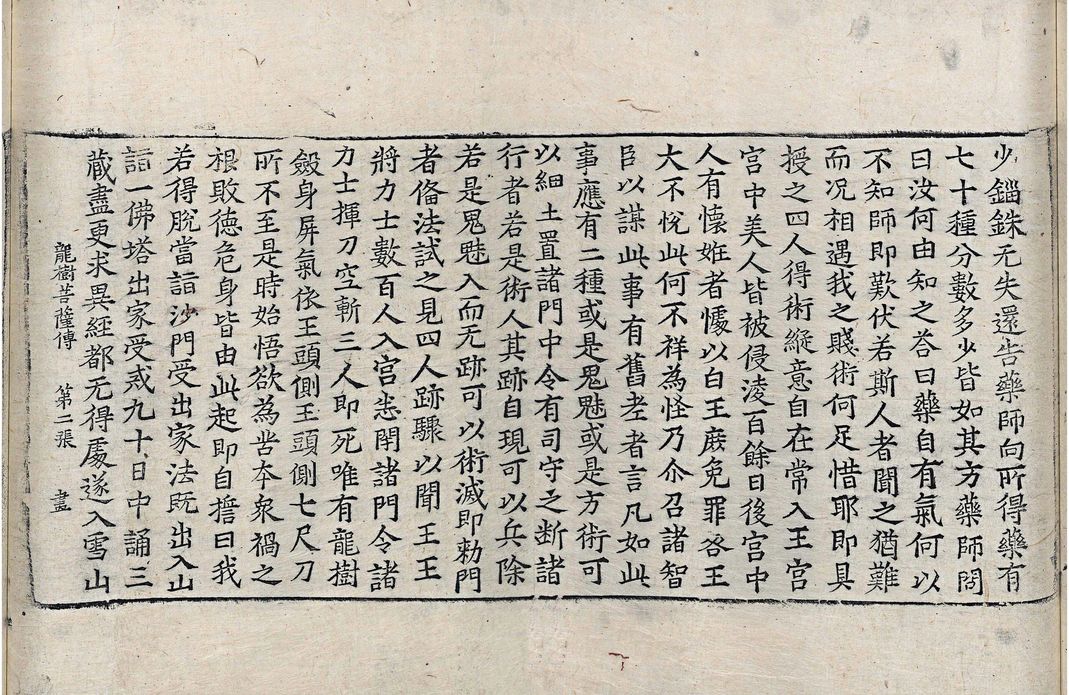 少錙銖无失還告藥師向所得藥有
七十種分數多少皆如其方藥師問
曰汝何由知之荅曰藥自有氣何以
不知師即歎伏若斯人者聞之猶難
而况相遇我之賤術何足惜耶即具
授之四人得術縱意自在常入王宮
宮中美人皆被侵淩百餘日後宮中
人有懷姙者懅以白王庶免罪咎王
大不悅此何不祥為怪乃尒召諸智
臣以謀此事有舊老者言凡如此
事應有二種或是鬼魅或是方術可
以細土置諸門中令有司守之断諸
行者若是術人其跡自現可以兵除
若是鬼魅入而无跡可以術滅即勑門
者俻法試之見四人跡驟以聞王王
將力士數百人入宮悉閇諸門令諸
力士揮刀空斬三人即死唯有龍樹
斂身屏氣依王頭側王頭側七尺刀
所不至是時始悟欲為苦本衆禍之
根敗德危身皆由此起即自誓曰我
若得脫當詣沙門受出家法既出入山
詣一佛塔出家受戒九十日中誦三
藏盡更求異經都无得處遂入雪山
龍樹菩薩傳　第二張　盡